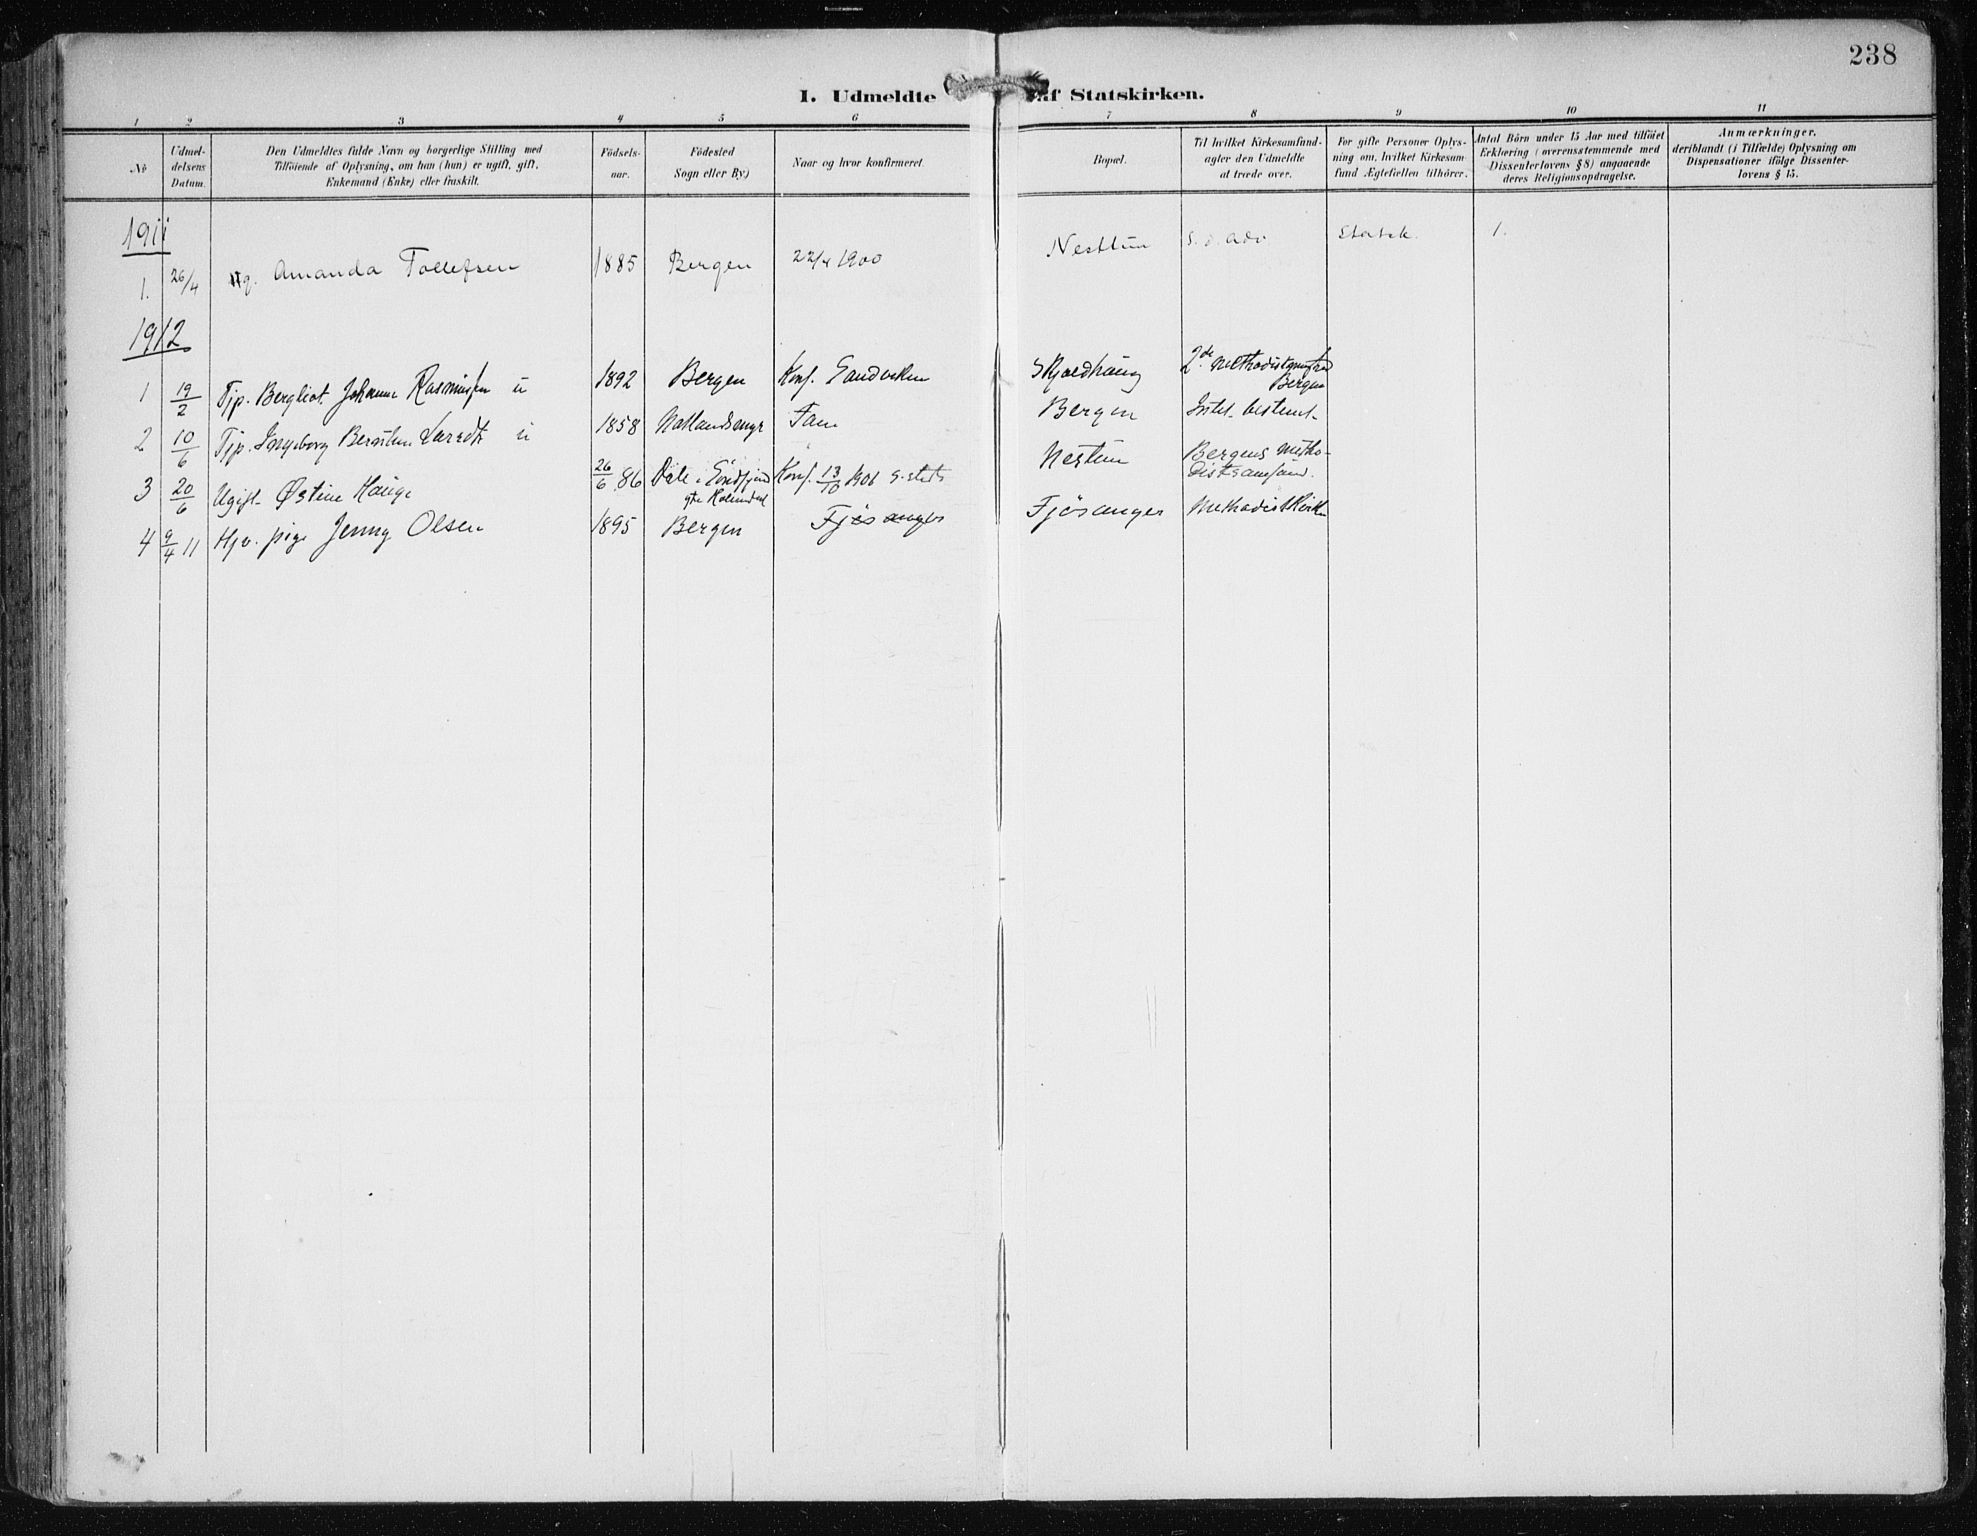 238
I. Udmeldte af Statskirken.
1 2 3 4 5 6 7 8 9 10 11
No
Udmel-
delsens
Datum.
Den Udmeldtes fulde Navn og borgerlige Stilling med
Tilföiende af Oplysning, om han (hun) er ugift, gift,
Enkemand (Enke) eller fraskilt.
Födsels-
aar.
Födested
Sogn eller By)
Naar og hvor konfirmeret.
Bopæl.
Til hvilket Kirkesamfund-
agter den Udmeldte
at træde over.
For gifte Personer Oplys-
ning om, hvilket Kirkesam-
fund Ægtefællen tilhører.
Antal Börn under 15 Aar med tilföiet
Erklæring (overensstemmende med
Dissenterlovens § 8) angaaende
deres Religionsopdragelse.
Anmærkninger,
deriblandt (i Tilfælde) Oplysning om
Dispensationer ifölge Dissenter-
lovens § 15.
1911
1. 26/4 Amanda Tollefsen 1885 Bergen 22/4 1900 Nesttun S. d. adv Statsk. 1.
1912
1 19/2 Tjp. Bergliot Johanne Rasmussen u 1892 Bergen Konf. Sandviken Skjoldhaug 2de Methodistmenighed
Bergen
2 10/6 Tjp. Ingeborg u 1858 Natlandsmyr Fane Bergen Intet bestemt
3 20/6 Ugift Østine Hauge 26/6 86 Dale i Søndfjord Konf. 13/10 1901 s. steds Nestun Bergens Metho-
distsamfund.
4 9/4 11 Hjv. pige Jenny Olsen 1895 Bergen Fjøsanger Fjøsanger Methodistkirken